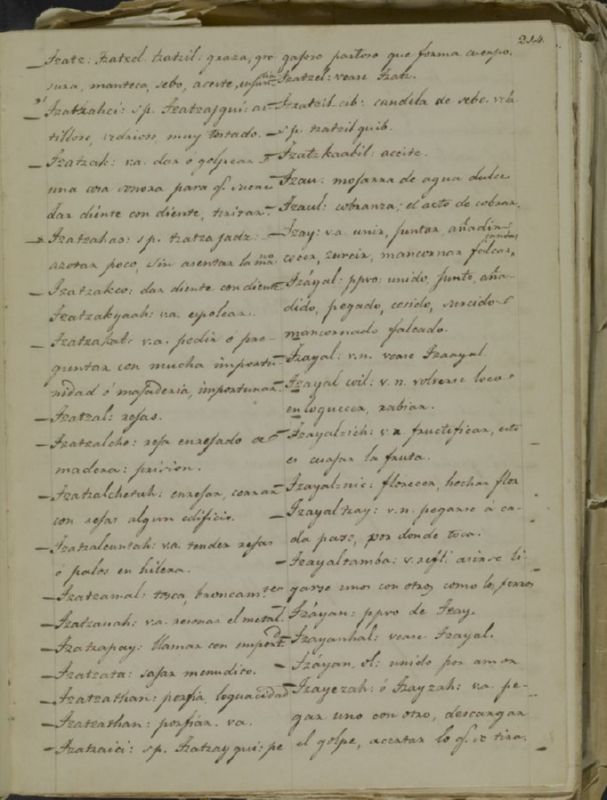 214
Tzatz: tzatzel tzatzil: graza, gro
sura, manteca, sebo, aceite,
Tzatzahci: sp. tzatzajgui: ar
tilloso, vedrioso, muy tostado.
Tzatzak: va. dar o golpear
una cosa sonora para q. suene
dar diente con diente, tiritar.
Tzatzahaa: sp. tzatzajadz:
azotar poco, sin asentar la mano
Tzatzakco: dar diente con diente
Tzatzakyaah: va. espolear.
Tzatzakat: v.a. pedir o pre
guntar con mucha importu
nidad ó majaderia, importunar
Tzatzal: rejas.
Tzatzalche: reja enrejado de
madera: prision.
Tzatzalchetah: enrejar, cerrar
con rejas algun edificio.
Tzatzalcuntah: va. tender rejas
o palos en hilera.
Tzatzamal: tosca, broncamtea
Tzatzanah: va. resonar el metal.
Tzatzapay: llamar con
Tzatzata: sajar menudito.
Tzatzathan: porfia, loquacidad
Tzatzathan: porfiar. va.
Tzatzaici: sp. tzatzaygui: pe
gajoso pastoso que forma cuerpo.
Tzatzel: vease tzatz.
Tzatzil cib: candela de sebo. vel
sp. tzatzil quib.
Tzatzkaabil: aceite.
Tzau: mojarra de agua dulce
Tzaul: cobranza; el acto de cobrar.
Tzay: va. unir, juntar, añadir
cocer, zurcir, mancornar
Tzáyal: ppvo: unido, junto, aña
dido, pegado, cosido, surcido
mancornado
Tzayal: v.n. vease Tzaayal
Tzayal coil: v.n. volverse loco
enloquecer, rabiar.
Tzayal-ich: v.n. fructificar, esto
es cuajar la fruta.
Tzayal-nic: florecer, hechar flor
Tzayaltzay: v.n. pegarse á ca
da paso, por donde toca.
Tzayaltamba: v.refl. asirse li
garse unos con otros, como los perros
Tzáyan: ppvo de Tzay.
Tzayanhal: vease Tzayal.
Tzáyan ol: unido por amor
Tzayezah: ó Tzayzah: va. pe
gar uno con otro, descargar
el golpe, acertar lo q. se tira.